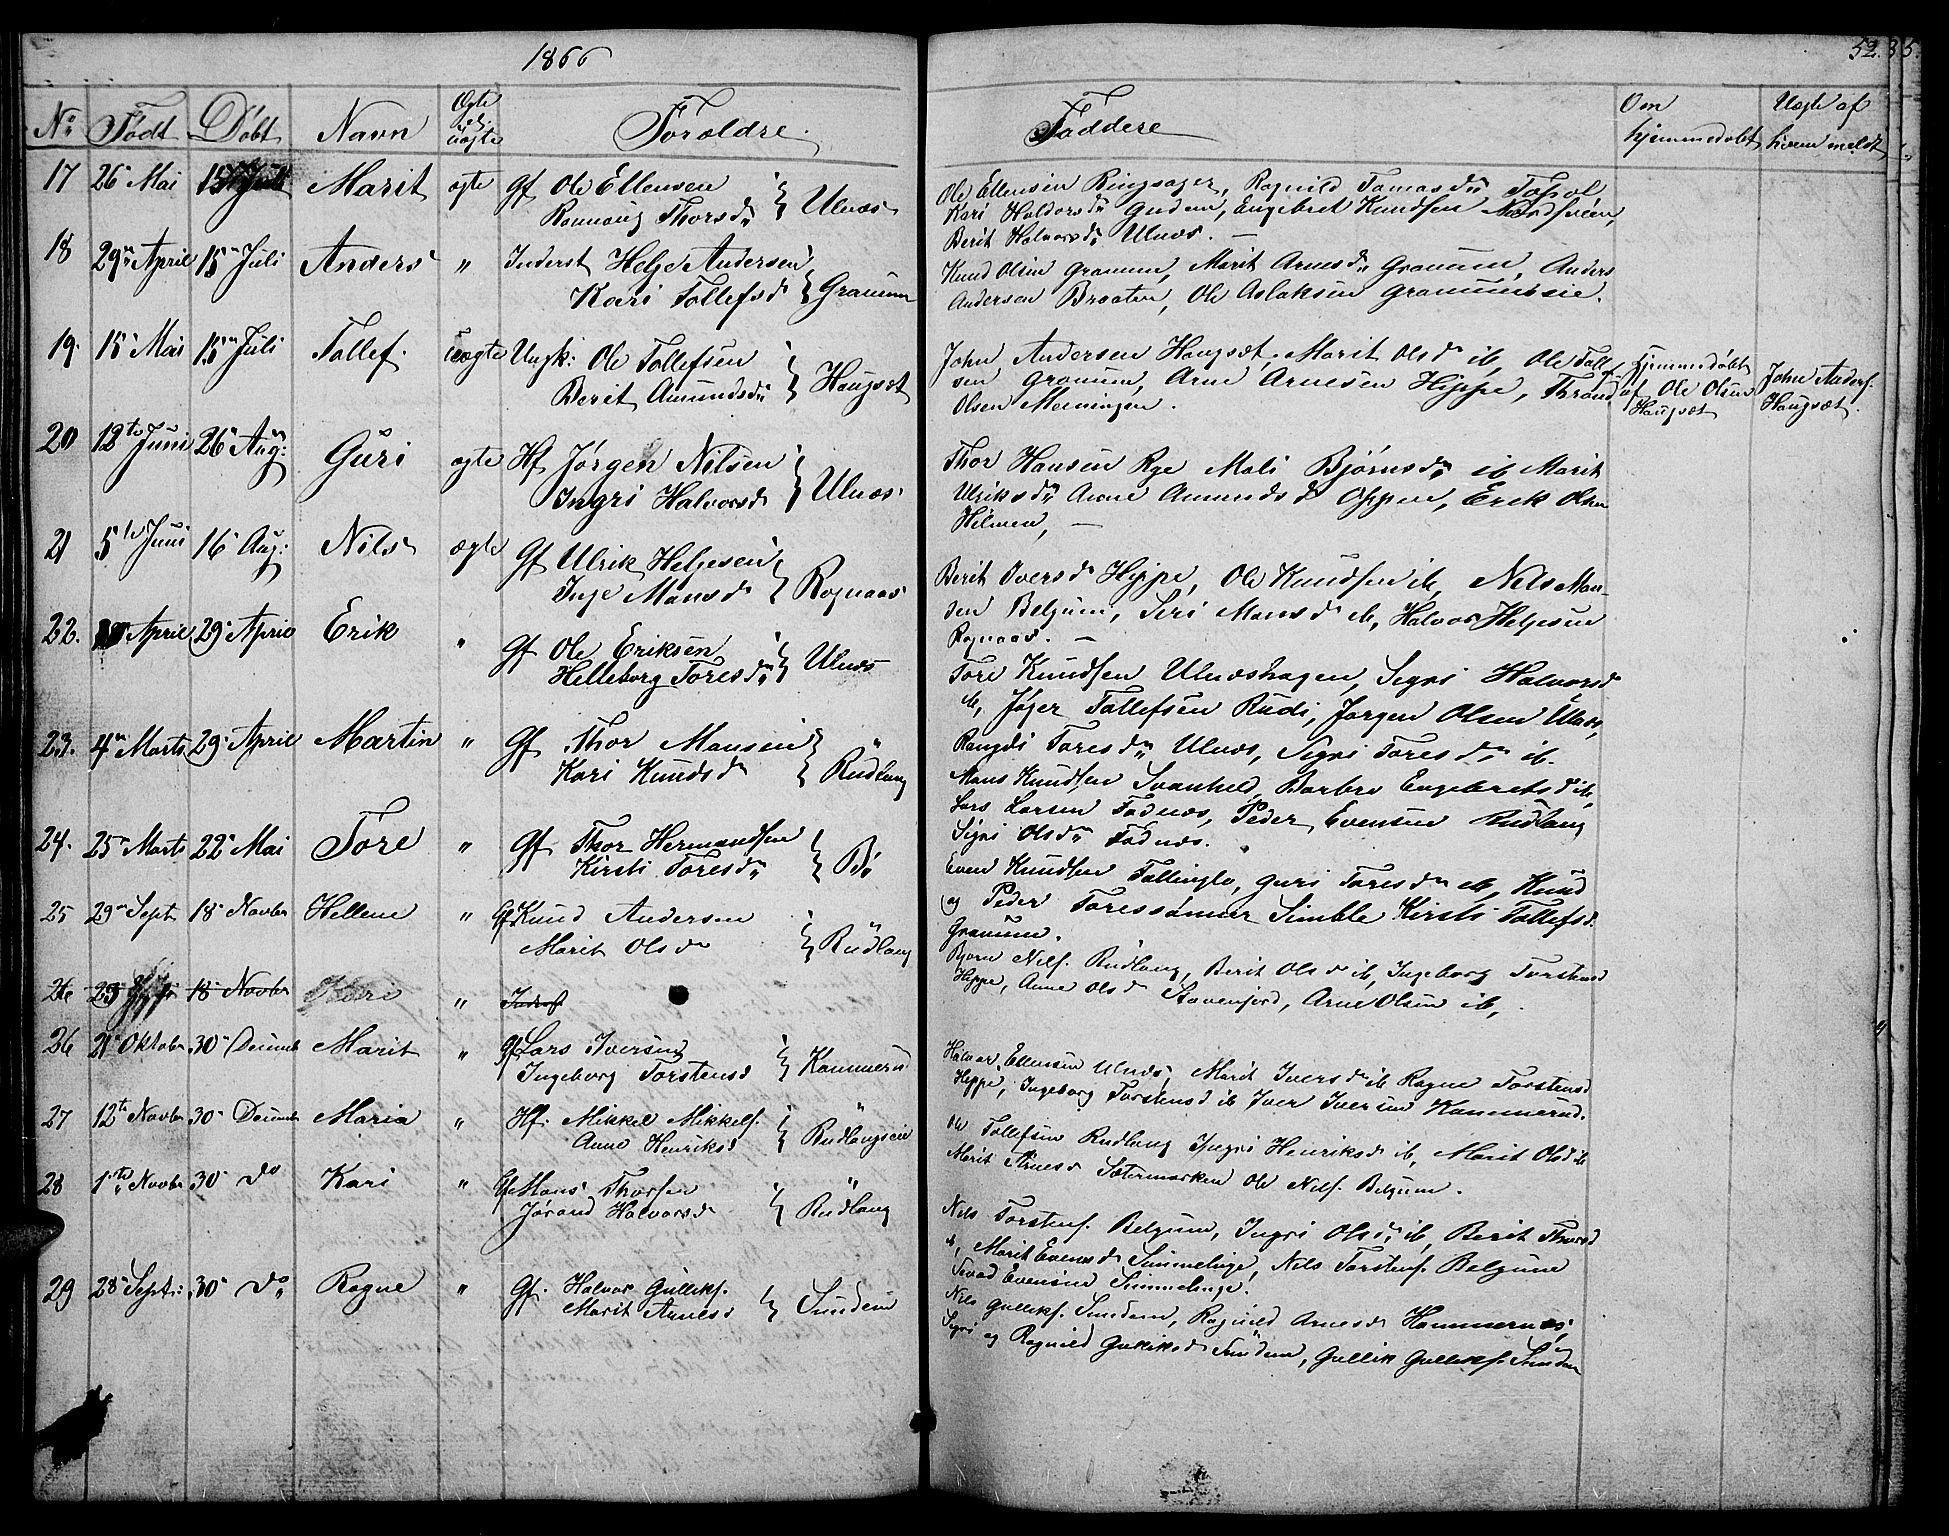 1866
52.
No Født Døbt Navn Ægte el. uægte Forældre. Faddere Om hjemmedøbt Uægte af hvem meldt
17 26 Mai 15 Juli Marit ægte Gf Ole Ellensen
Rannaug Thorsd. Ulnæs
Ole Ellensen Ringsager, Ragnild Tomasdr
Kari Haldorsdr Gudem, Engebret Knudsen Nordsveen,
Berit Halvorsdr Ulnæs. —
18 29 April 15 Juli Anders " Inderst Helge Andersen
Kari Tollefsd Granum
Knud Olsen Granum, Marit Arnesdr Granum, Anders
Andersen Braaten, Ole Aslaksen Granumseie.
19. 15 Mai 15 Juli Tollef. uægte Ungk: Ole Tollefsen
Berit Amundsdr Haugsæt
John Andersen Haugsæt, Marit Olsd ib, Ole Tollef-
sen Granum, Arne Arnesen Hippe, Thrond
Olsen Meiningen.
Hjemmedøbt
af Ole Olsen
Haugsæt
John Anders.
Haugsæt.
20 12te Juni 26 Aug: Guri ægte Hf Jørgen Nilsen
Ingri Halvorsd Ulnæs
Thor Hansen Rye Mali Bjørnsdr ib Marit
Ulriksdr Anne Amundsd Oppen, Erik Olsen
Hilmen, —
21 5te Juni 16 Aug: Nils ægte Gf Ulrik Helgesen
Inge Mansd Rognaas
Berit Iversd Hippe, Ole Knudsen ib, Nils Man-
sen Belgum, Siri Mansd ib, Halvor Helgesen
Rognaas. —
22. April 29 April Erik " Gf Ole Eriksen
Helleborg Toresdr Ulnæs
Tore Knudsen Ulnæshagen, Segri Halvorsd
ib, Jøger Tollefsen Rudi, Jørgen Olsen Ulnæs,
Rangdi Toresdr Ulnæs, Sigri Toresdr ib.
23. 4 Marts 29 April Martin " Gf Thor Mansen
Kari Knudsd Rudlang
Mans Knudsen Svanheld, Barbro Engebretsd ib,
Lars Larsen Fødnæs, Peder Evensen Rudlang
Sigri Olsdr Fødnæs.
24. 25 Marts 22 Mai Tore " Gf Thor Hermandsen
Kirsti Toresdr Bø
Even Knudsen Tollinglø, Guri Toresdr ib, Knud
og Peder Toressønner Simble Kirsti Tollefsd.
Granum.
25 29 Sept 18 Novbr Hellene " Gf Knud Andersen
Marit Olsdr Rudlang
Bjørn Nils. Rudlang, Berit Olsd ib, Ingeborg Torstensd
Hippe, Anne Olsd Stavenjord, Arne Olsen ib,
26 29 18 Novbr Kari " Inderst
26 21 Oktober 30 Decemb Marit " Gf Lars Iversen
Ingeborg Torstensd Kammerud
Halvor Ellensen Ulnæs, Marit Iversd ib Ragne Torstensd
Hippe, Ingeborg Torstensd ib Iver Iversen Kammerud.
27 12te Novbr 30 Decemb Maria " Hf: Mikkel Mikkels.
Anne Henriksd Rudlangseie
Ole Tollefsen Rudlang Ingri Henriksd ib, Marit Olsd ib
Marit Arnesd Sætermarken Ole Nils. Belgum.
28 1te Novbr 30 do Kari " Gf Mans Thorsen
Jørand Halvorsd Rudlang
Nils Torstens. Belgum, Ingri Olsd ib, Berit Thorsd
ib, Marit Evensd Simmelinge, Nils Torstens. Belgum
Sevad Evensen Simmelinge.
29 28 Septr: 30 do Ragne " Gf. Halvor Gulliks.
Marit Arnesd Sundem
Nils Gulliks. Sundem, Ragnild Arnesd Hammernæs,
Sigri og Ragnild Gulliksd Sundem, Gullik Gulliks. Sundem